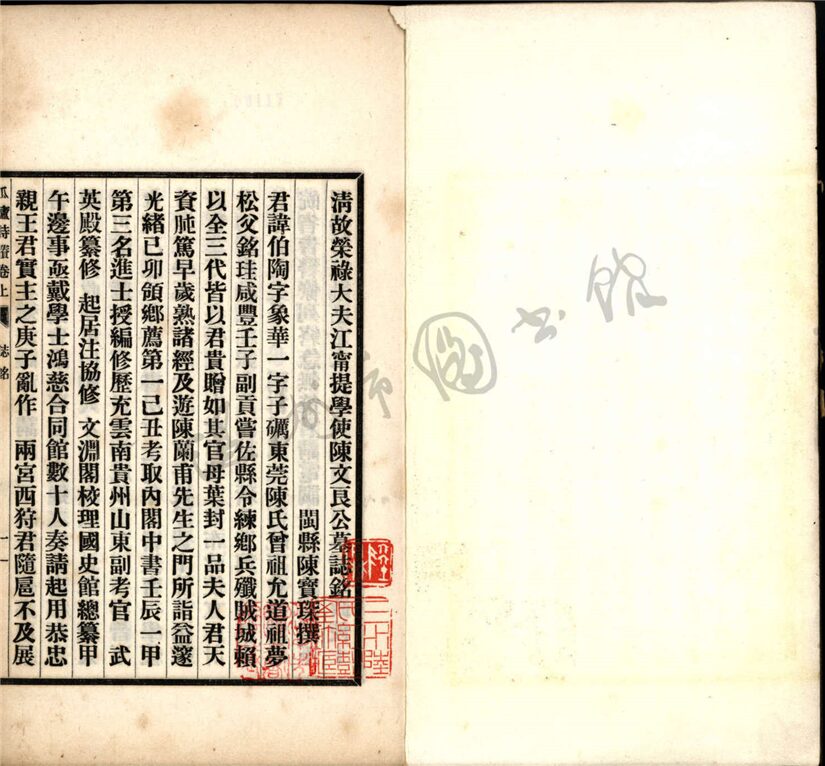 清故榮祿大夫江甯提學使陳文良公墓誌銘
閩縣陳寶琛撰
君諱伯陶字象華一字子礪東莞陳氏曾祖允道祖夢
松父銘珪咸豐壬子副貢嘗佐縣令練鄉兵殲賊城賴
以全三代皆以君貴贈如其官母葉封一品夫人君天
資肫篤早歲熟諸經及遊陳蘭甫先生之門所詣益邃
光緒己卯領鄉薦第一己丑考取內閣中書壬辰一甲
第三名進士授編修歷充雲南貴州山東副考官　武
英殿纂修　起居注協修　文淵閣校理國史館總纂甲
午邊事亟戴學士鴻慈合同館數十人奏請起用恭忠
親王君實主之庚子亂作　兩宮西狩君隨扈不及展
瓜廬詩賸卷上　誌銘　一
書館